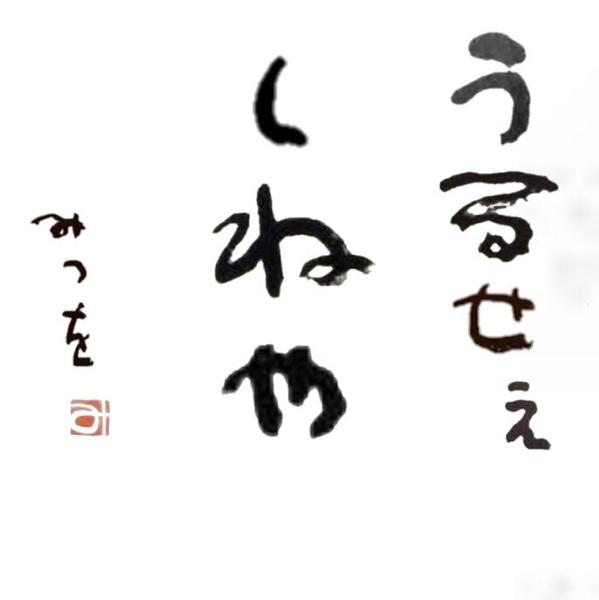 うるせぇ
しねや
みつを
み